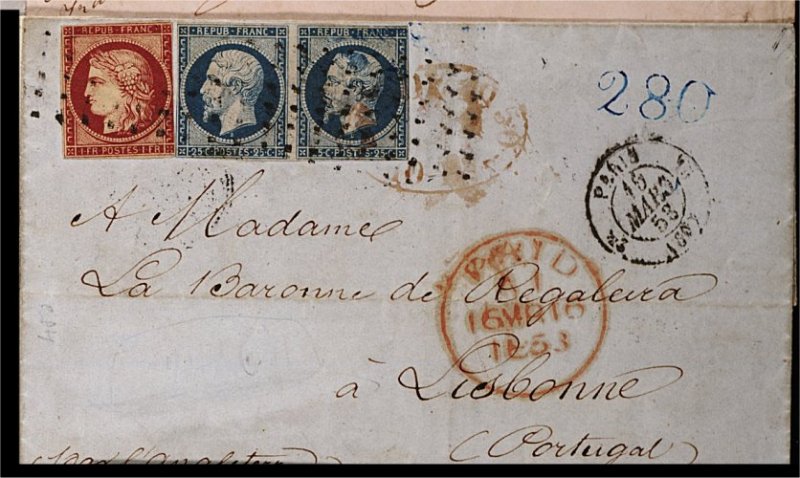 REPUB. FRANC.
1 FR POSTES 1 FR
REPUB. FRANC.
25 C. POSTES. 25 C.
REPUB. FRANC.
C. POSTES. 25 C.
280
PARIS
15
MARS
53
A Madame
La Baronne de Regaleira
PAID
16 MR 16
1853
à Lisbonne
(Portugal)